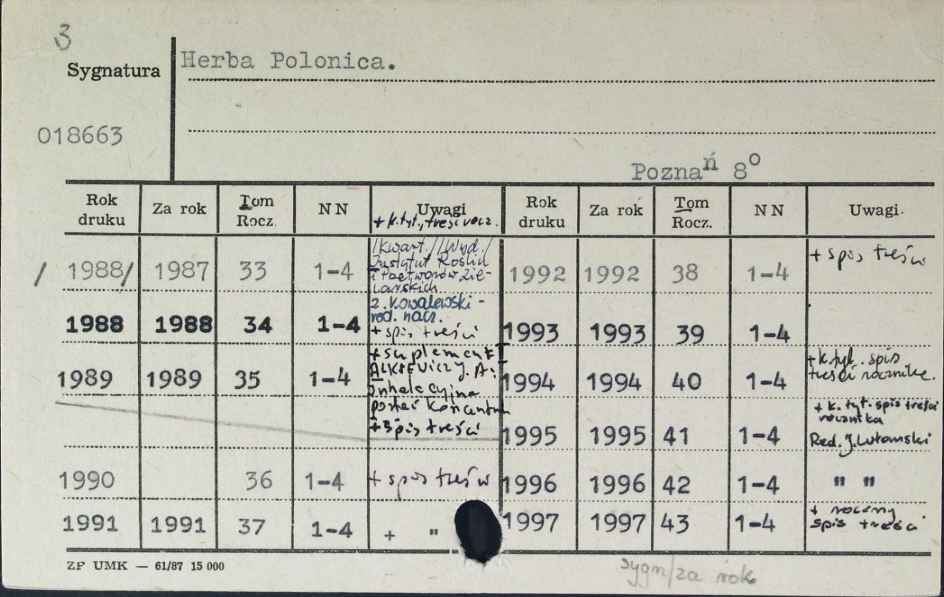 3
Sygnatura
Herba Polonica.
018663
Poznań 8º
Rok druku | Za rok | Tom Rocz. | NN | Uwagi | Rok druku | Za rok | Tom Rocz. | NN | Uwagi
+ k.tyt., treści rocz.
/1988/ | 1987 | 33 | 1-4 | /Kwart./ /Wyd./ Instytut Roślin i Przetworów Zielarskich | 1992 | 1992 | 38 | 1-4 | + spis treści
1988 | 1988 | 34 | 1-4 | Z. Kowalewski - red. nacz. + spis treści | 1993 | 1993 | 39 | 1-4
1989 | 1989 | 35 | 1-4 | + suplement I J. A.: Inhalacyjna postać + spis treści | 1994 | 1994 | 40 | 1-4 | + k.tyt. spis treści rocznika.
1995 | 1995 | 41 | 1-4 | + k. tyt. spis treści rocznika Red. J. Lutomski
1990 | 36 | 1-4 | + spis treści | 1996 | 1996 | 42 | 1-4 | " "
1991 | 1991 | 37 | 1-4 | + " | 1997 | 1997 | 43 | 1-4 | + roczny spis treści
ZP UMK — 61/87 15 000
sygn/za rok